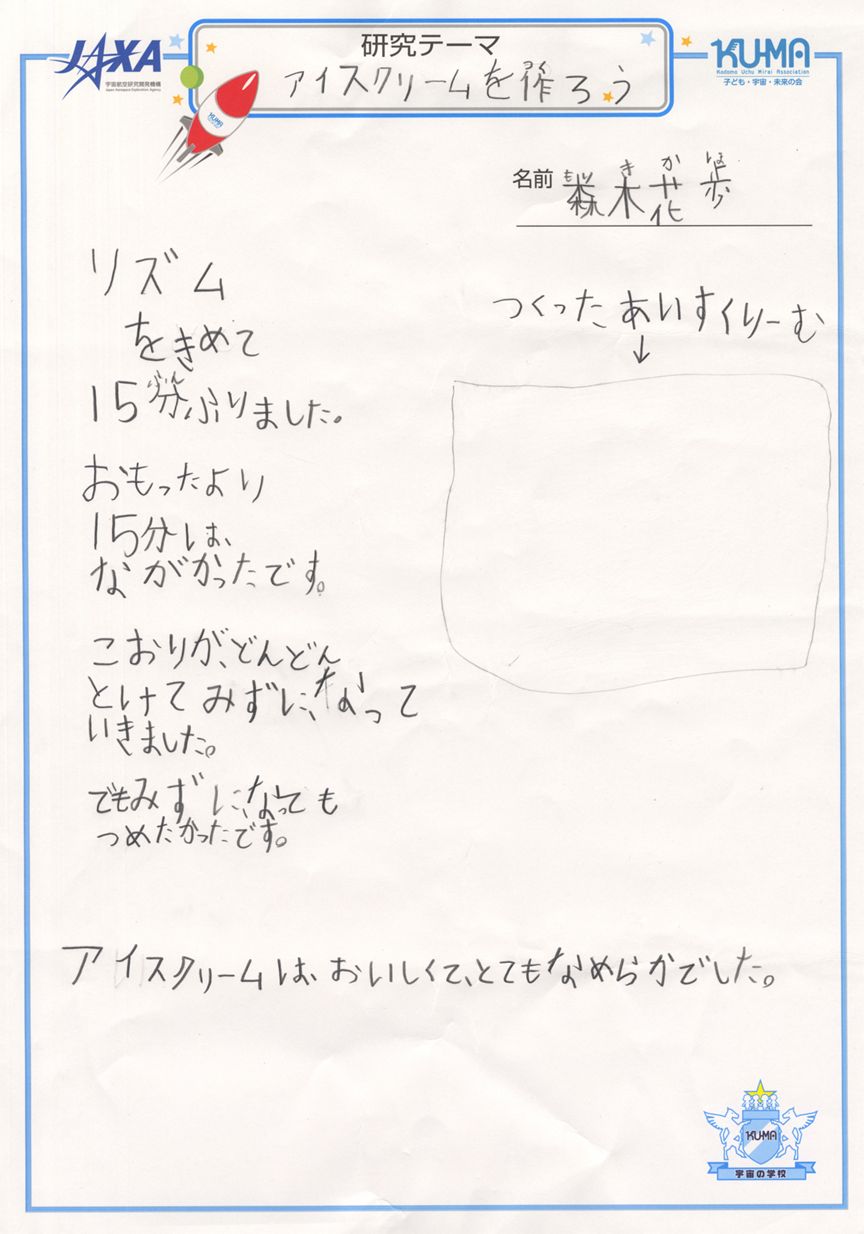 JAXA
宇宙航空研究開発機構
Japan Aerospace Exploration Agency
研究テーマ
アイスクリームを作ろう
KU-MA
Kodomo Uchu Mirai Association
子ども・宇宙・未来の会
KU-MA
もり き か ほ
名前 森木花歩
リズム
をきめて
ふん
15分ふりました。
おもったより
15分は、
ながかったです。
こおりが、どんどん
とけてみずに、なって
いきました。
でもみずに、なっても
つめたかったです。
つくったあいすくりーむ
↓
アイスクリームは、おいしくて、とてもなめらかでした。
KU-MA
宇宙の学校